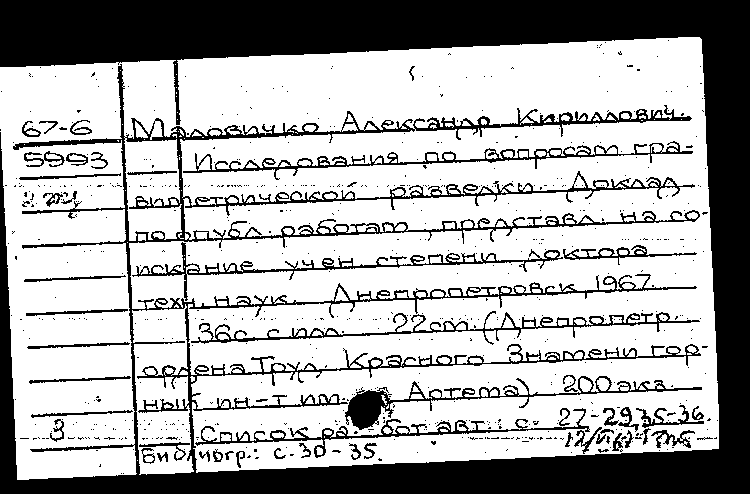 67-6 Маловичко, Александр Кириллович.
5993 Исследования по вопросам гра-
2 виметрической разведки. Доклад
по опубл. работам, представл. на со-
искание учен степени доктора
техн. наук. Днепропетровск, 1967.
36с. с илл. 22см. (Днепропетр.
ордена Труд. Красного Знамени гор-
ный ин-т им. Артема). 200 экз.
3 Список ра- бот авт.: с. 27-29, 35-36.
Библиогр.: с. 30-35.